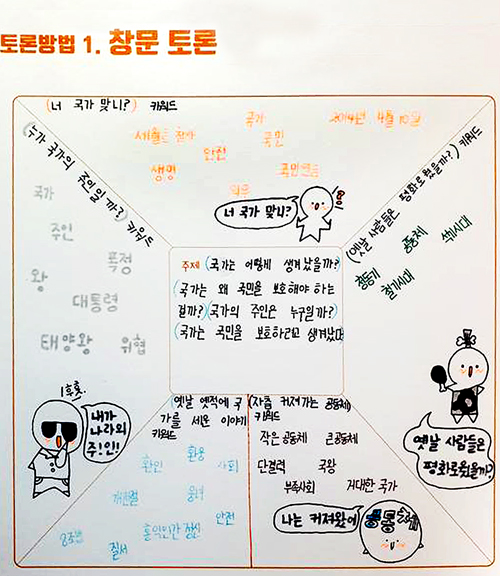 토론방법 1. 창문 토론
(너 국가 맞니?) 키워드
국가
2014년 4월 16일
세월호 참사
국민
안전
생명
국민연금
의무
너 국가 맞니?
(누가 국가의 주인일까?) 키워드
국가
주인
왕
폭정
대통령
태양왕
위협
(옛날 사람들은 평화로웠을까?) 키워드
공동체
석기시대
청동기
철기시대
주제 (국가는 어떻게 생겨났을까?)
(국가는 왜 국민을 보호해야 하는
걸까?)(국가의 주인은 누구일까?)
(국가는 국민을 보호하려고 생겨났다
후훗.
내가
나라의
주인!
옛날 옛적에 국
가를 세운 이야기
키워드
환인
환웅
사회
개천절
웅녀
홍익인간 정신
안전
8조법
질서
(자꾸 커져가는 공동체)
키워드
작은 공동체
큰공동체
단결력
국왕
부족사회
거대한 국가
나는 커져왔어
공동체
옛날 사람들은
평화로웠을까?